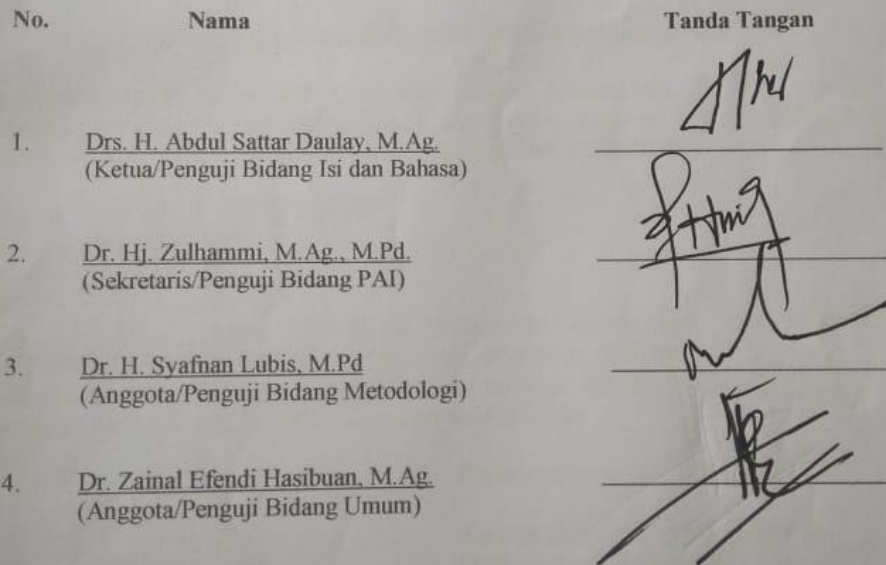 No. Nama Tanda Tangan
1. Drs. H. Abdul Sattar Daulay, M.Ag.
(Ketua/Penguji Bidang Isi dan Bahasa)
2. Dr. Hj. Zulhammi, M.Ag., M.Pd.
(Sekretaris/Penguji Bidang PAI)
3. Dr. H. Syafnan Lubis, M.Pd
(Anggota/Penguji Bidang Metodologi)
4. Dr. Zainal Efendi Hasibuan, M.Ag.
(Anggota/Penguji Bidang Umum)